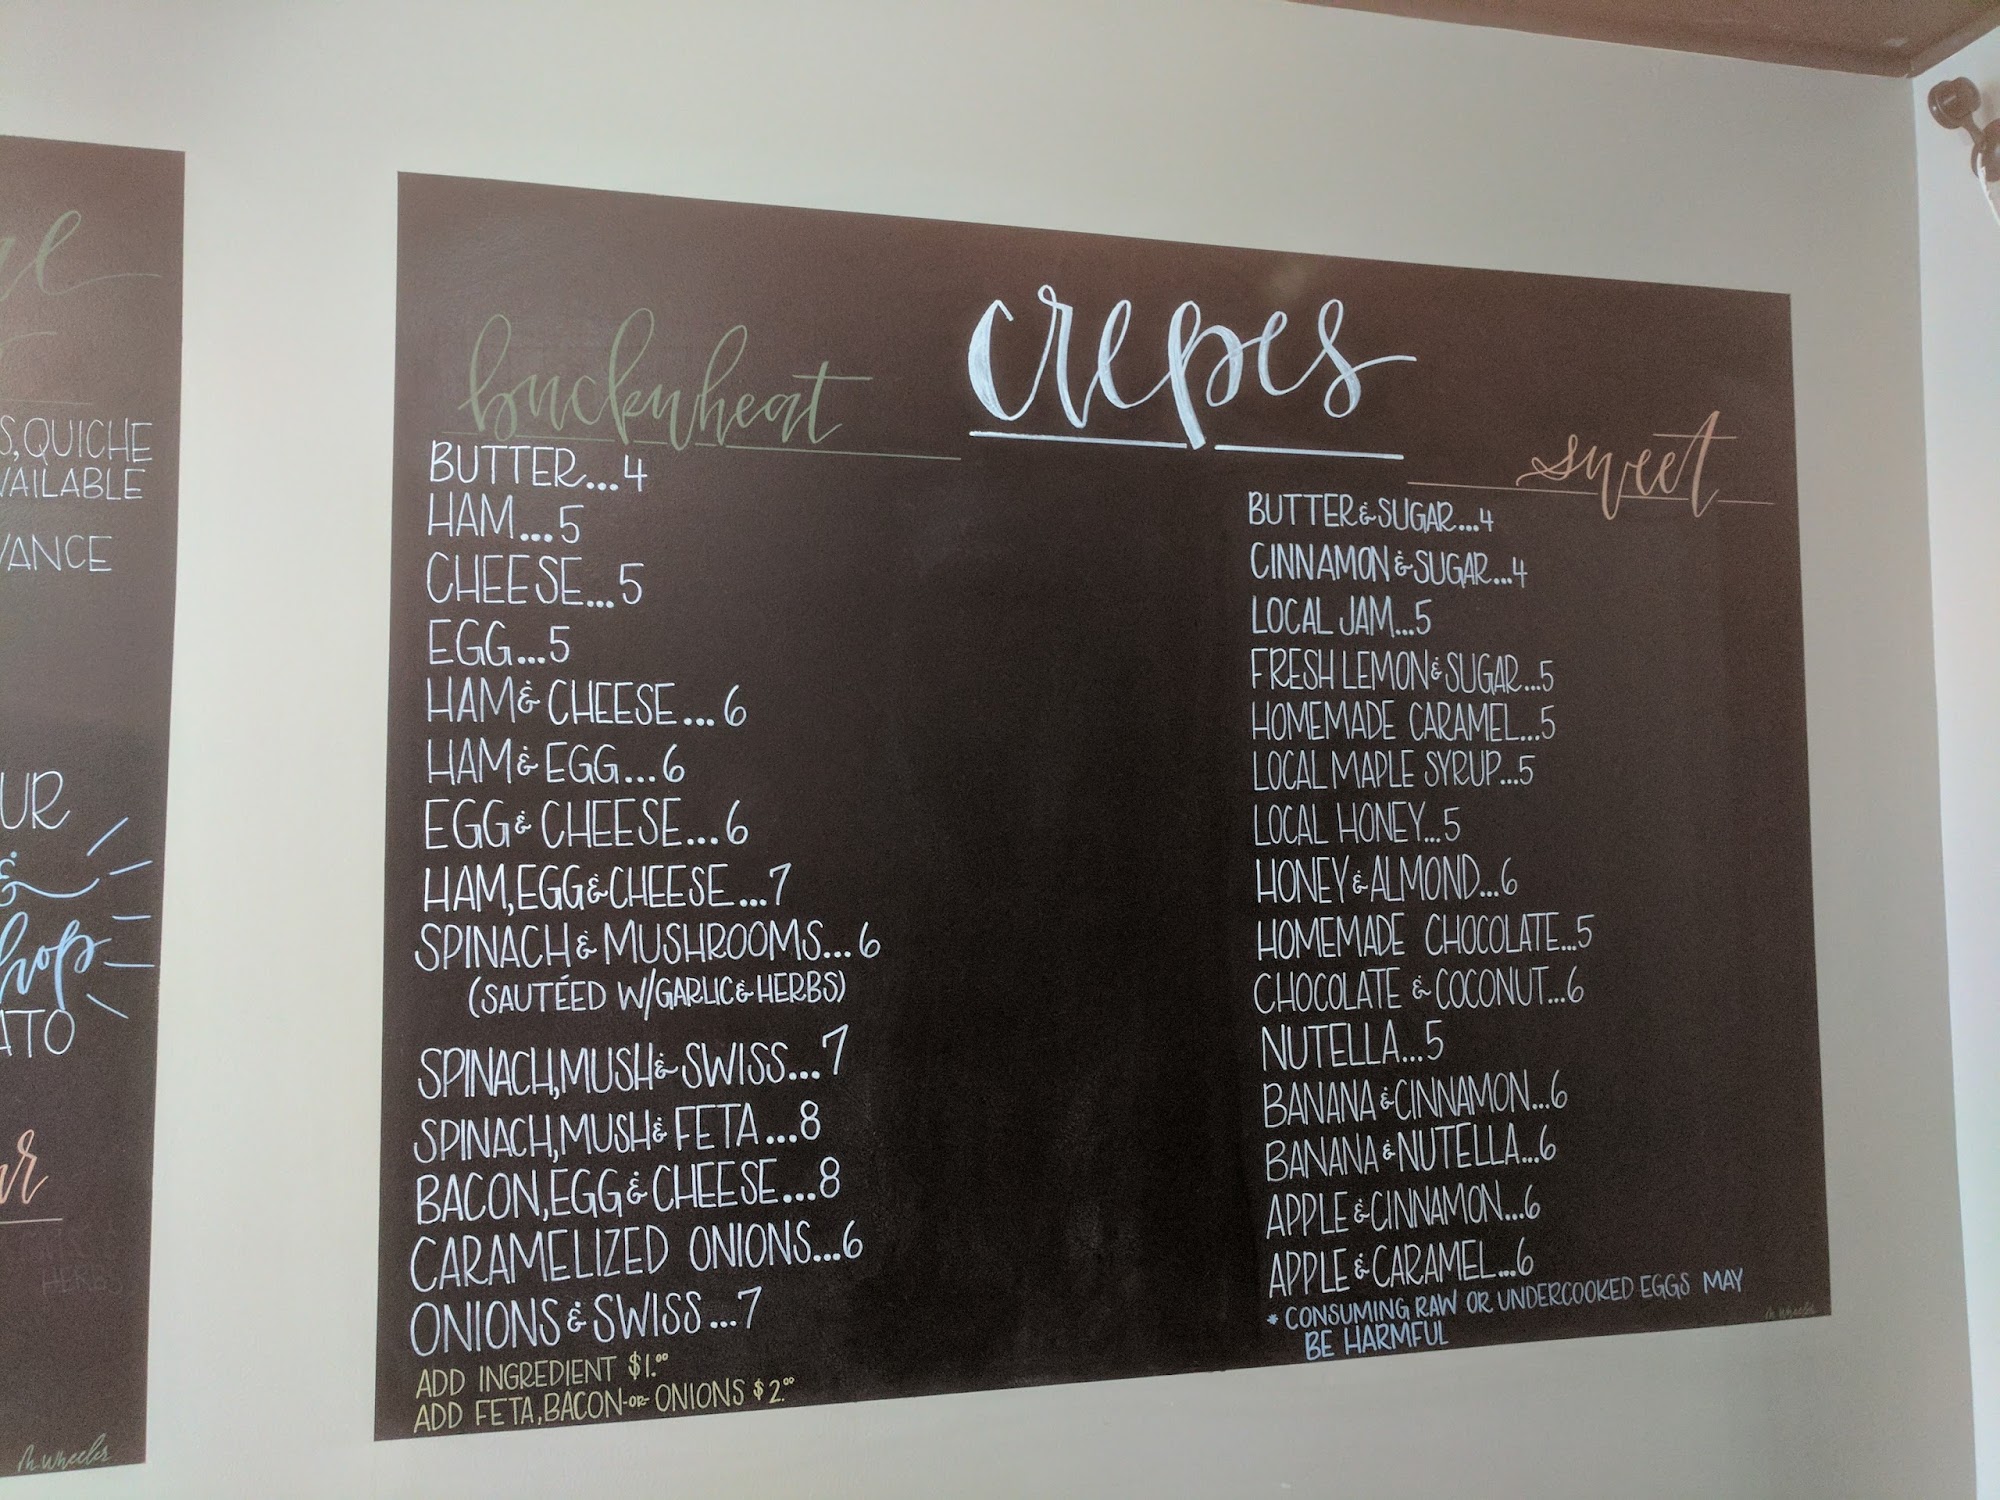 S, QUICHE
VAILABLE
VANCE
UR
&
hop
ATO
HERBS
M Wheeler
crepes
buckwheat
BUTTER...4
HAM...5
CHEESE...5
EGG...5
HAM & CHEESE...6
HAM & EGG...6
EGG & CHEESE...6
HAM, EGG & CHEESE...7
SPINACH & MUSHROOMS...6
(SAUTÉED W/GARLIC & HERBS)
SPINACH, MUSH & SWISS...7
SPINACH, MUSH & FETA...8
BACON, EGG & CHEESE...8
CARAMELIZED ONIONS...6
ONIONS & SWISS...7
ADD INGREDIENT $1.00
ADD FETA, BACON -or- ONIONS $2.00
sweet
BUTTER & SUGAR...4
CINNAMON & SUGAR...4
LOCAL JAM...5
FRESH LEMON & SUGAR...5
HOMEMADE CARAMEL...5
LOCAL MAPLE SYRUP...5
LOCAL HONEY...5
HONEY & ALMOND...6
HOMEMADE CHOCOLATE...5
CHOCOLATE & COCONUT...6
NUTELLA...5
BANANA & CINNAMON...6
BANANA & NUTELLA...6
APPLE & CINNAMON...6
APPLE & CARAMEL...6
* CONSUMING RAW OR UNDERCOOKED EGGS MAY
BE HARMFUL
M Wheeler